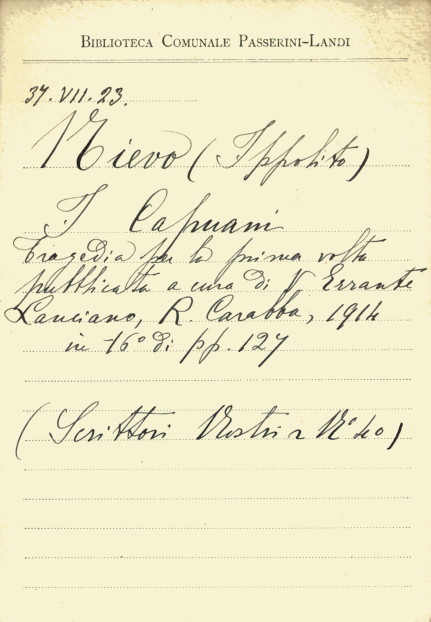 BIBLIOTECA COMUNALE PASSERINI-LANDI
37.VII.23.
Nievo (Ippolito)
I Capuani
Tragedia per la prima volta
pubblicata a cura di V Errante
Lanciano, R. Carabba, 1914
in 16° di pp. 127
(Scrittori Nostri N° 40)